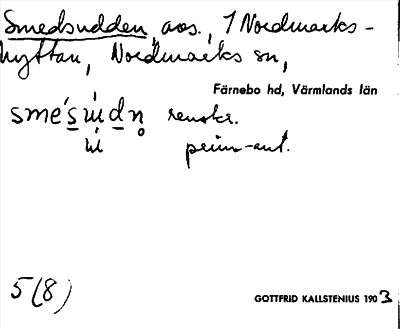 Smedsudden, aos., 1 Nordmarks-
hyttan, Nordmarks sn,
Färnebo hd, Värmlands län
renskr.
prim-ant.
5(8)
GOTTFRID KALLSTENIUS 1903